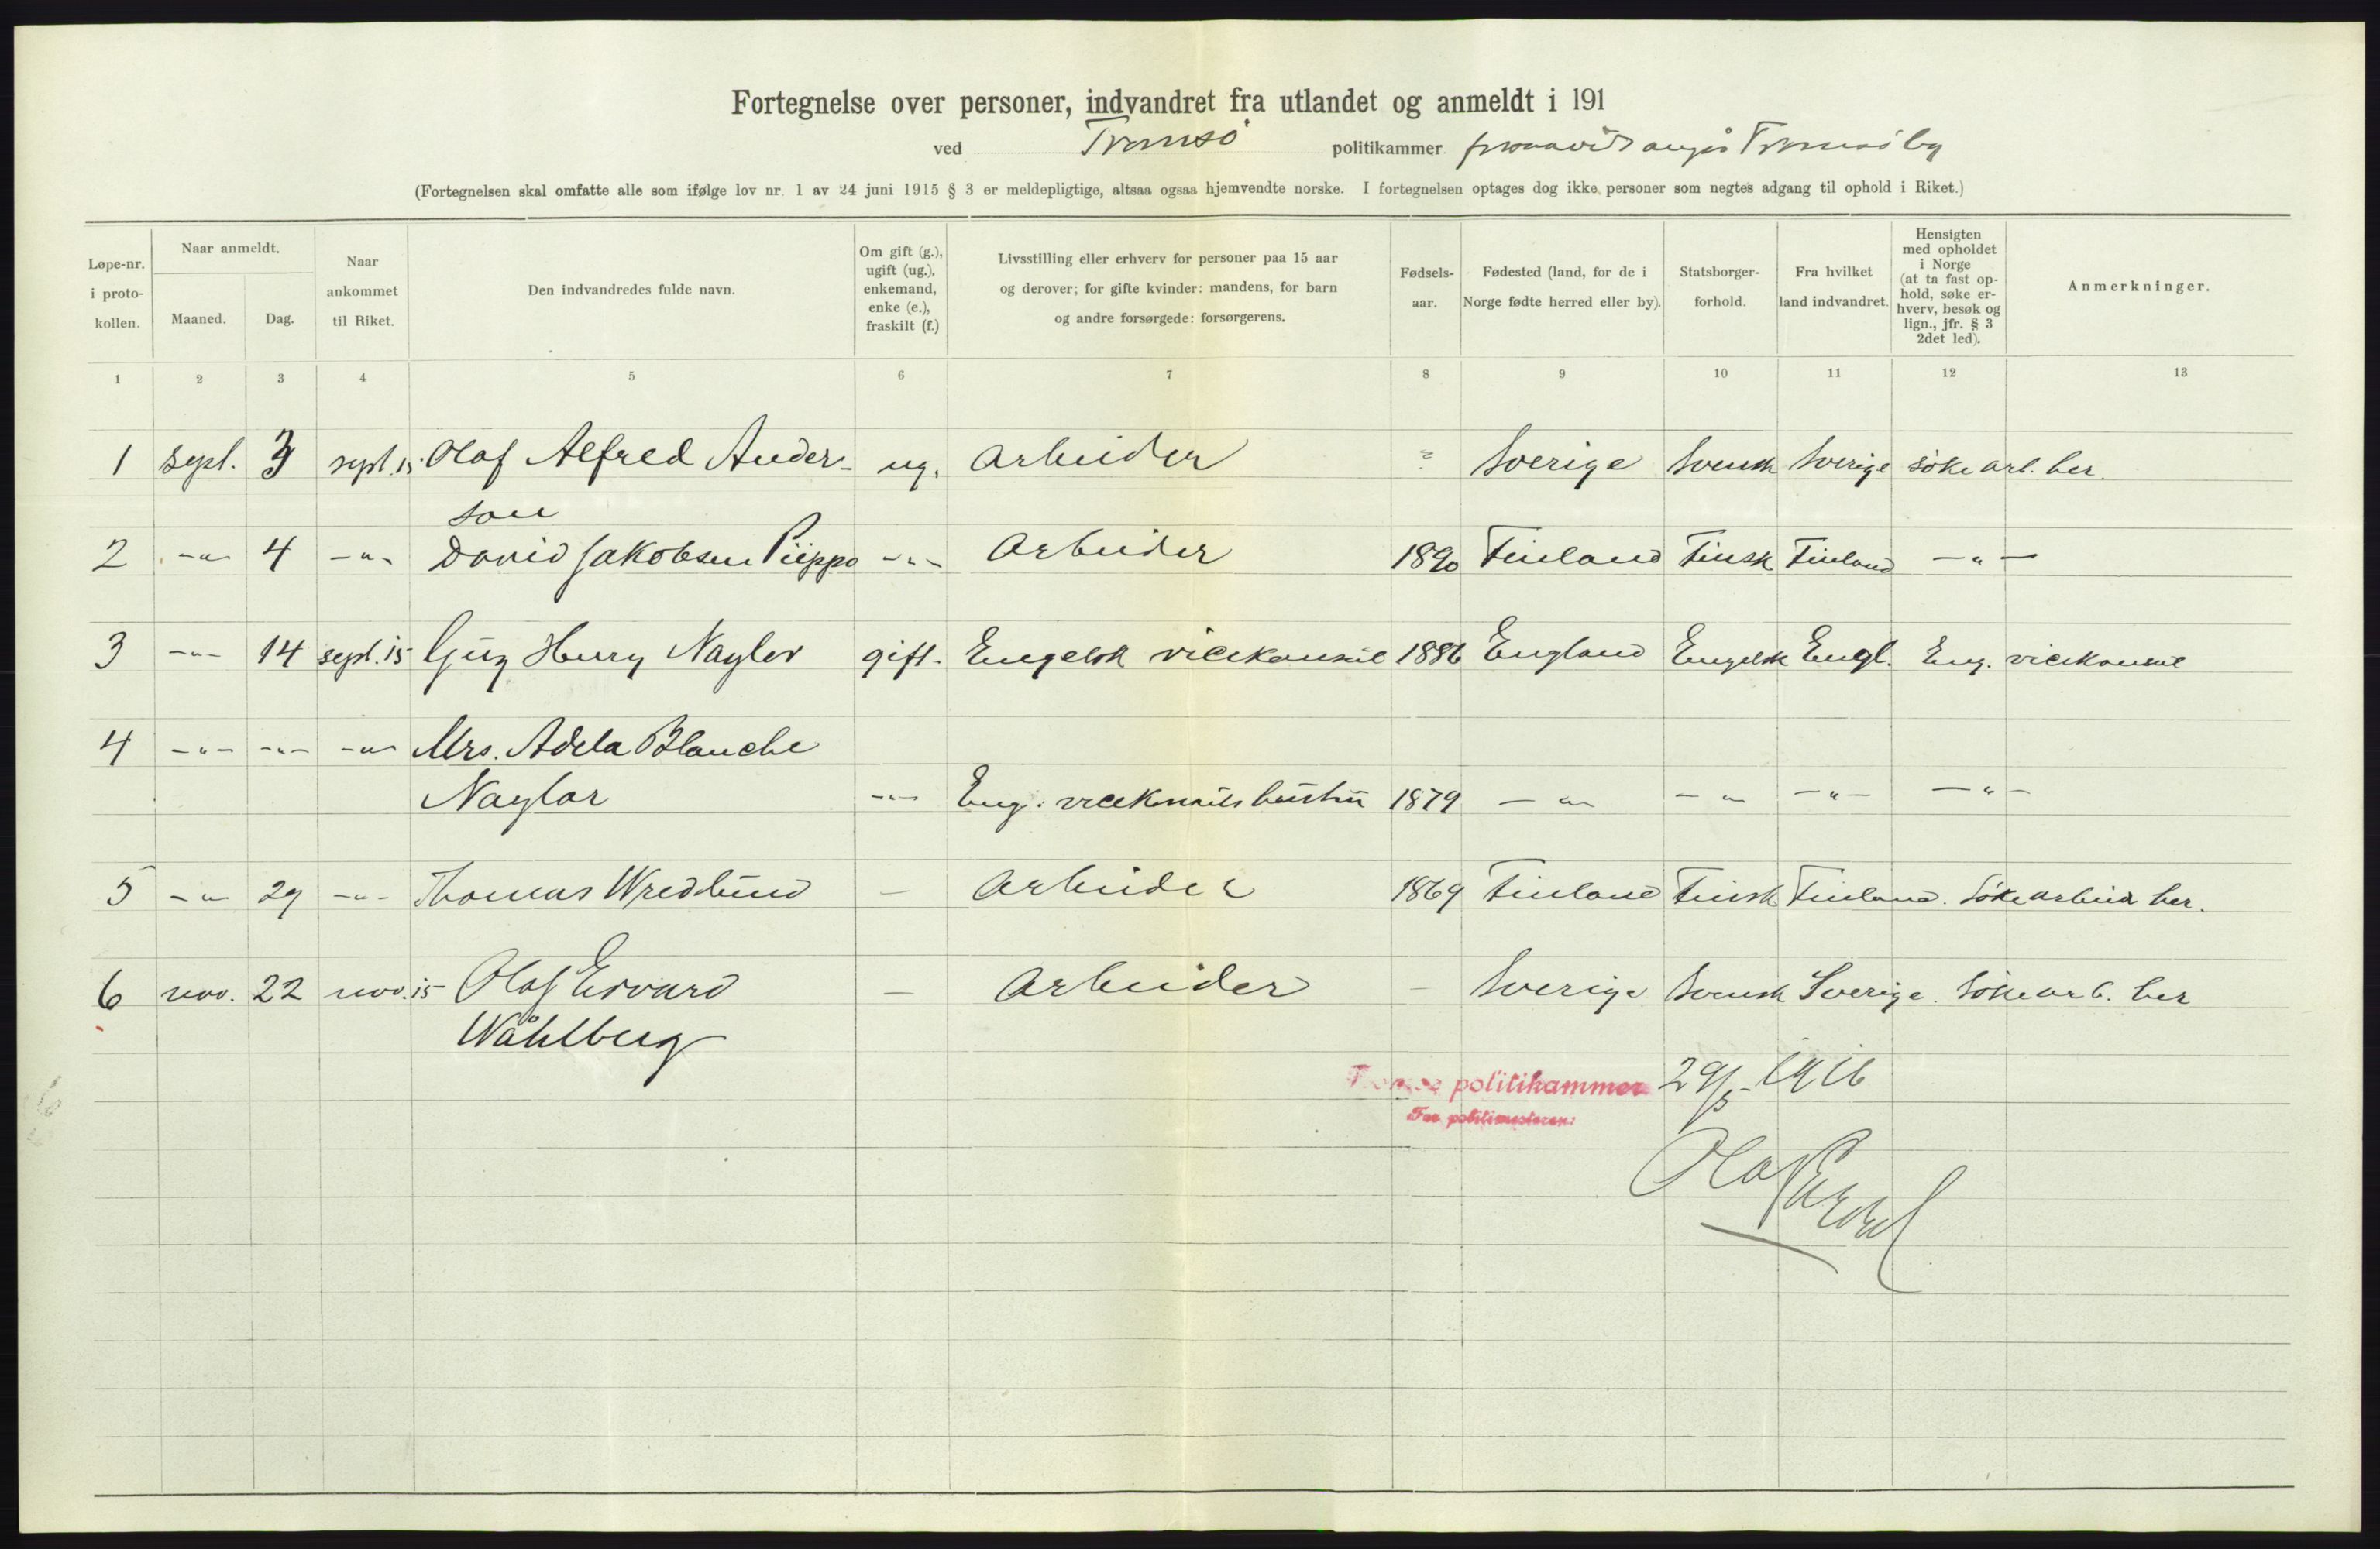 Fortegnelse over personer, indvandret fra utlandet og anmeldt i 191
ved Tromsø politikammer forsaavidt angår Tromsø by
(Fortegnelsen skal omfatte alle som ifølge lov nr. 1 av 24 juni 1915 § 3 er meldepligtige, altsaa ogsaa hjemvendte norske. I fortegnelsen optages dog ikke personer som negtes adgang til ophold i Riket.)
Løpe-nr. i proto- kollen.
Naar anmeldt.
Maaned.
Dag.
Naar ankommet til Riket.
Den indvandredes fulde navn.
Om gift (g.), ugift (ug.), enkemand, enke (e.), fraskilt (f.)
Livsstilling eller erhverv for personer paa 15 aar og derover; for gifte kvinder: mandens, for barn og andre forsørgede: forsørgerens.
Fødsels- aar.
Fødested (land, for de i Norge fødte herred eller by).
Statsborger- forhold.
Fra hvilket land indvandret.
Hensigten med opholdet i Norge (at ta fast op- hold, søke er- hverv, besøk og lign., jfr. § 3 2det led).
Anmerkninger.
1 2 3 4 5 6 7 8 9 10 11 12 13
1 sept. 3 sept. 15 Olaf Alfred Ander- ug. Arbeider Sverige Svensk Sverige søke arb. her.
son
2 -"- 4 -"- David Jakobsen Piippo -"- Arbeider 1890 Finland Finsk Finland -"-
3 -"- 14 sept. 15 Guy Henry Naylor gift. Engelsk vicekonsul 1886 England Engelsk Engl. Eng. vicekonsul
4 -"- -"- -"- Mrs. Adela Blanche
Naylor -"- Eng. vicekonsuls hustru 1879 -"- -"- -"- -"-
5 -"- 29 -"- Thomas Wredlund - Arbeider 1869 Finland Finsk Finland. Søke arbeid her.
6 nov. 22 nov. 15 Olaf Edvard - Arbeider - Sverige Svensk Sverige. Søke arb. her
Wåhlberg
Tromsø politikammer 29/5-1916
For politimesteren:
Olaf